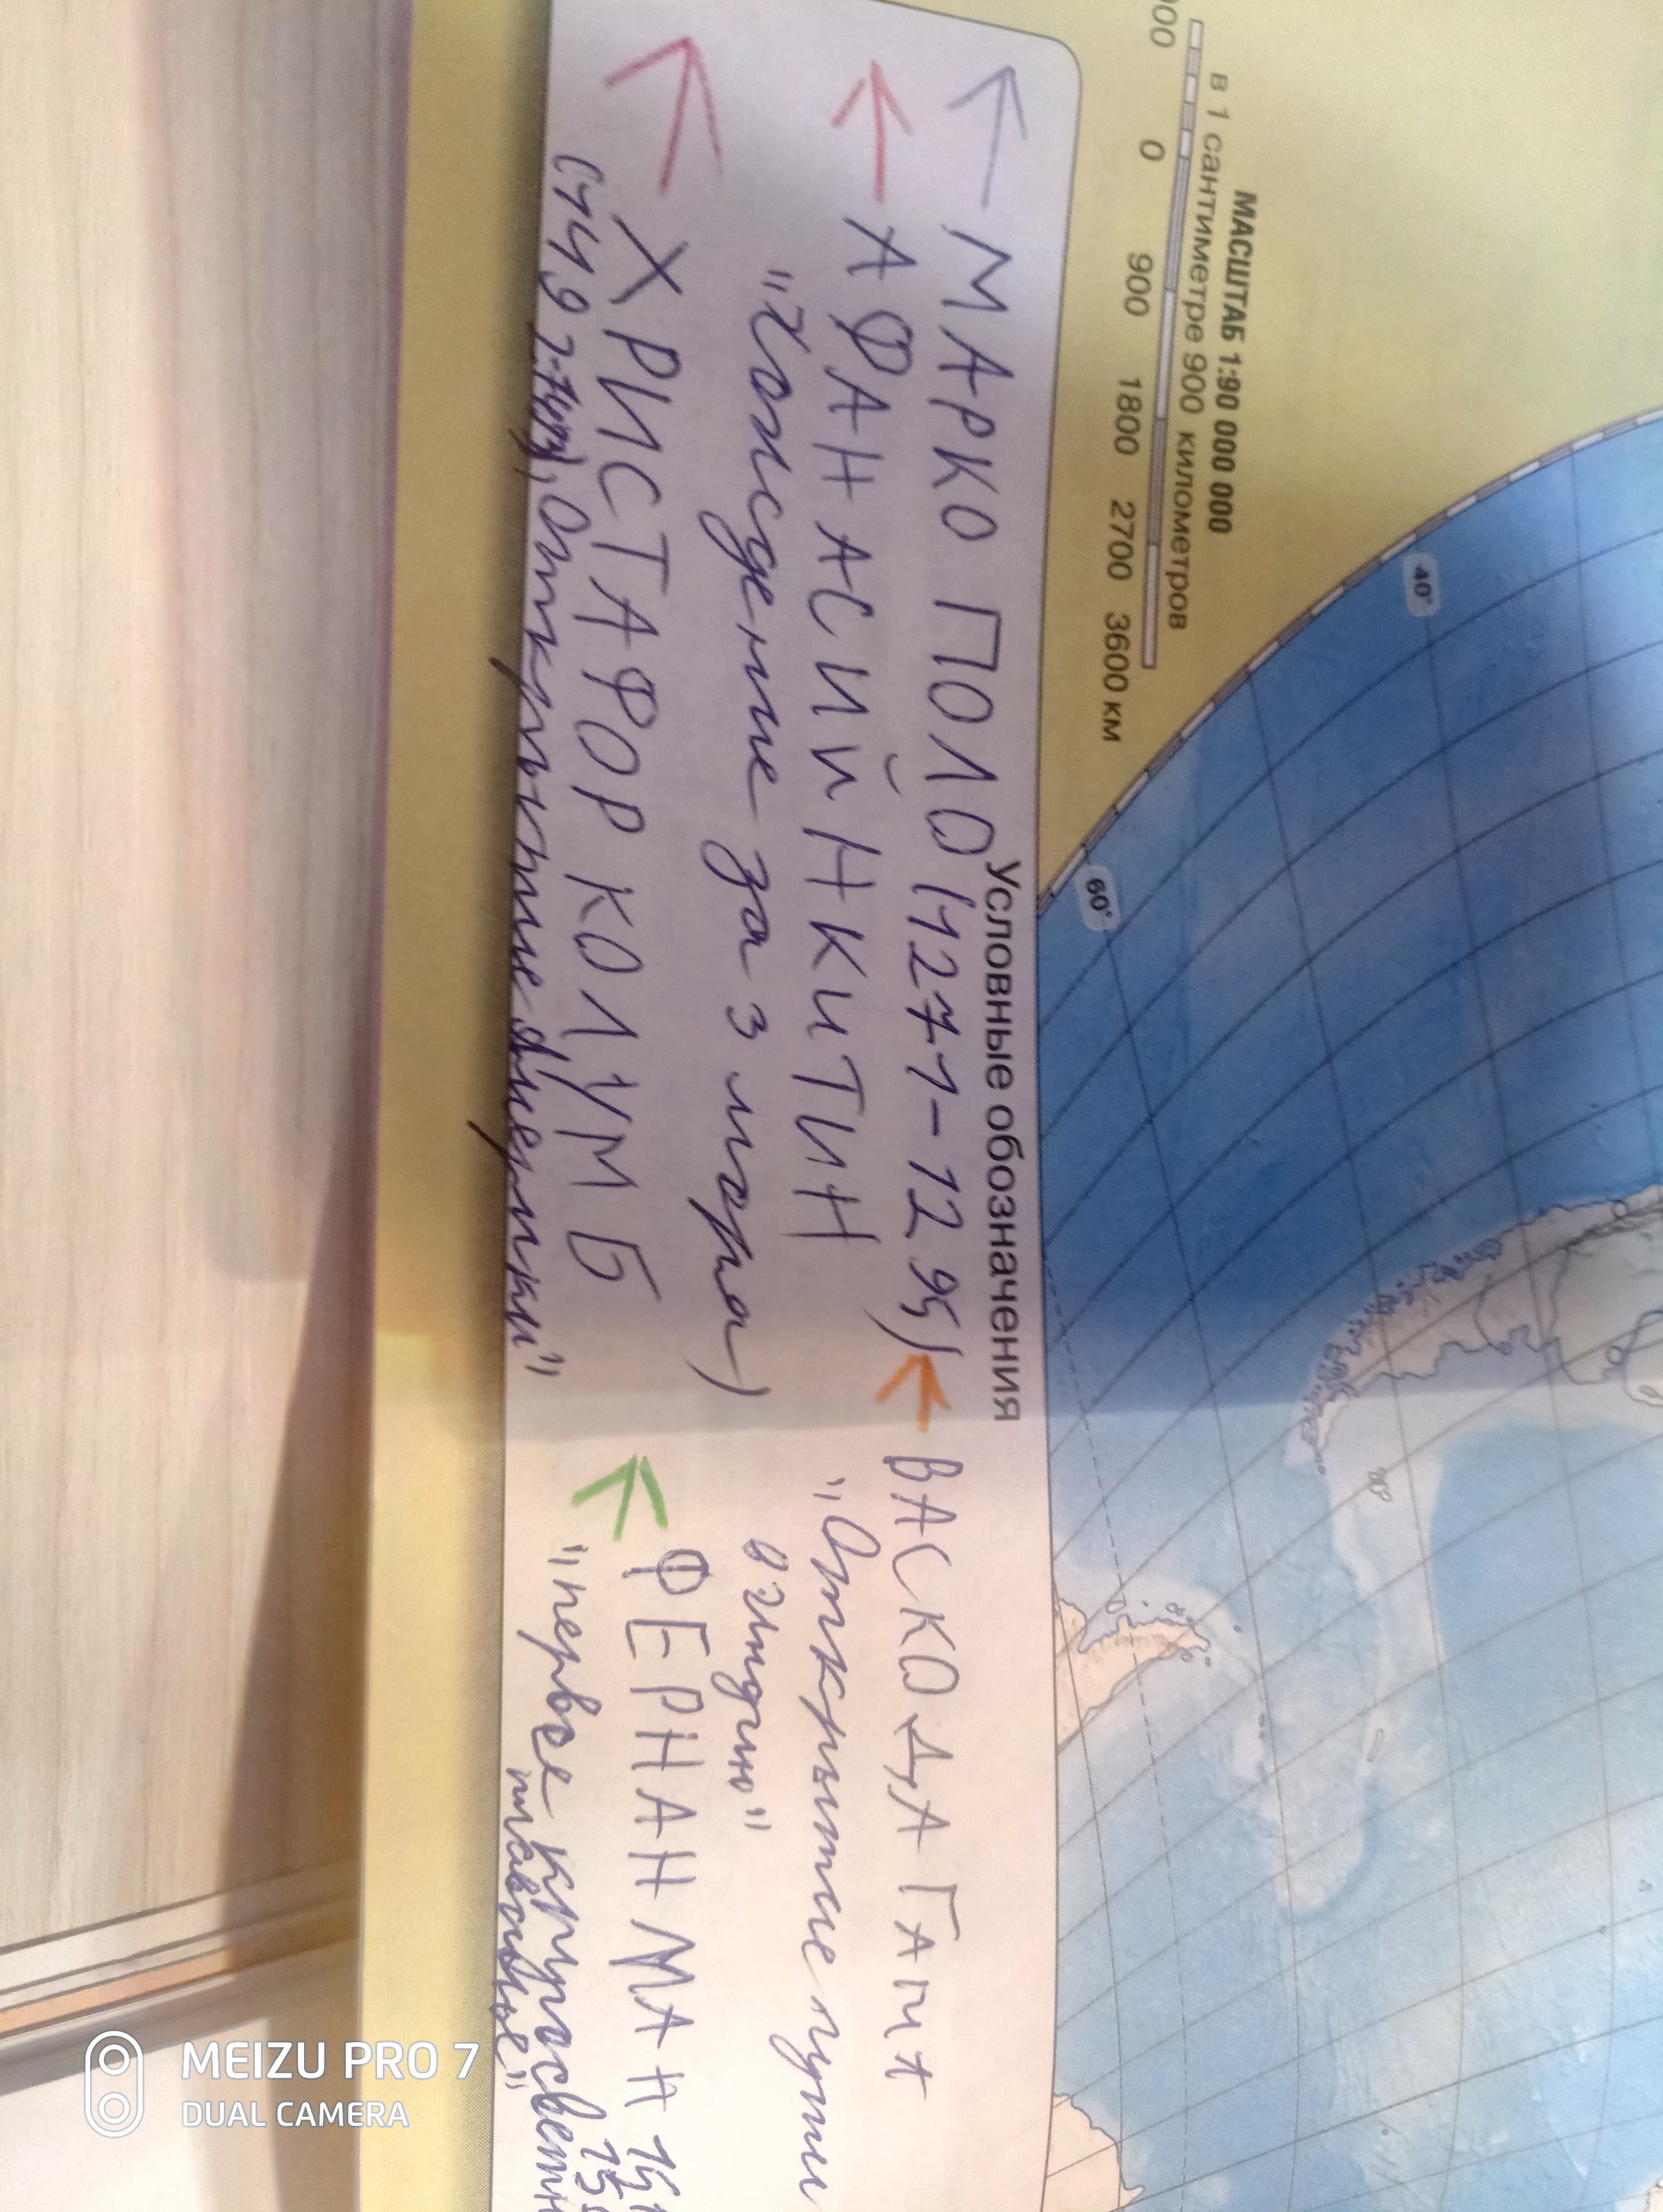 МАСШТАБ 1:90 000 000
в 1 сантиметре 900 километров
00 0 900 1800 2700 3600 км
40°
60°
80°
Условные обозначения
МАРКО ПОЛО (1271-1295)
АФАНАСИЙ НКИТИН
"Хождение за 3 моря)
ХРИСТАФОР КОЛУМБ
Открытие Америки"
ВАСКО ДА ГАМА
"Открытие пути
в Индию"
ФЕРНАН МАН
"первое кругосветн
плаванье"
MEIZU PRO 7
DUAL CAMERA